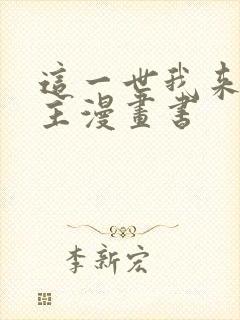 這一世我来
主漫畫書
李新宏